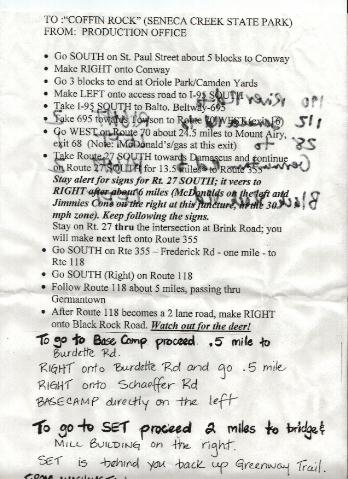 TO: "COFFIN ROCK" (SENECA CREEK STATE PARK)
FROM: PRODUCTION OFFICE
• Go SOUTH on St. Paul Street about 5 blocks to Conway
• Make RIGHT onto Conway
• Go 3 blocks to end at Oriole Park/Camden Yards
• Make LEFT onto access road to I-95 SOUTH
• Take I-95 SOUTH to Balto. Beltway-695
• Take 695 toward Towson to Route 70 WEST
• Go WEST on Route 70 about 24.5 miles to Mount Airy,
exit 68 (Note: McDonald's/gas at this exit)
• Take Route 27 SOUTH towards Damascus and continue
on Route 27 SOUTH for 13.5 miles to Route 355
Stay alert for signs for Rt. 27 SOUTH; it veers to
RIGHT after about 6 miles (McDonalds on the left and
Jimmies Cone on the right at this juncture, in the 30
mph zone). Keep following the signs.
Stay on Rt. 27 thru the intersection at Brink Road; you
will make next left onto Route 355
• Go SOUTH on Rte 355 – Frederick Rd - one mile - to
Rte 118
• Go SOUTH (Right) on Route 118
• Follow Route 118 about 5 miles, passing thru
Germantown
• After Route 118 becomes a 2 lane road, make RIGHT
onto Black Rock Road. Watch out for the deer!
To go to Base Camp proceed .5 mile to
Burdette Rd.
RIGHT onto Burdette Rd and go .5 mile
RIGHT onto Schaeffer Rd
BASECAMP directly on the left
To go to SET proceed 2 miles to bridge &
MILL BUILDING on the right.
SET is behind you back up Greenway Trail.